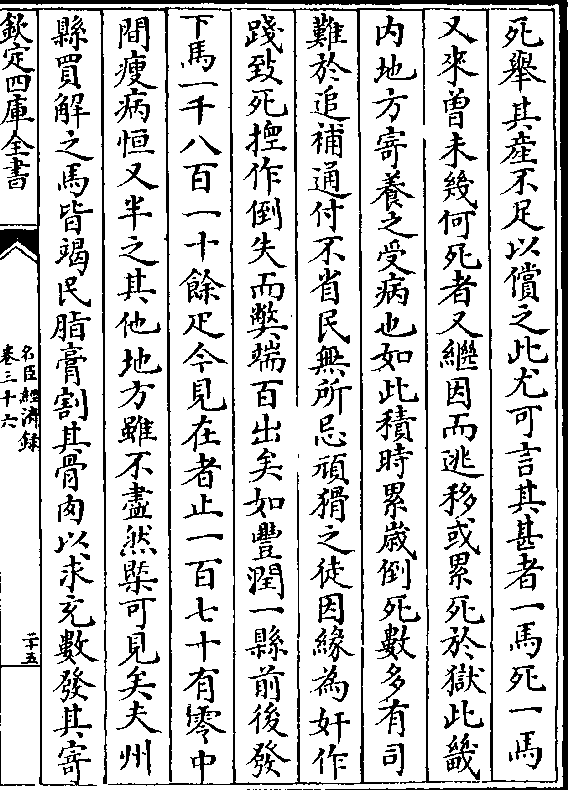 死舉其産不足以償之此尤可言其甚者一馬死一馬
又來曾未幾何死者又繼因而逃移或累死於獄此畿
内地方寄養之受病也如此積時累歲倒死數多有司
難於追補通付不省民無所忌頑猾之徒因緣為奸作
踐致死揑作倒失而弊端百出矣如豐潤一縣前後發
下馬一千八百一十餘疋今見在者止一百七十有零中
間瘦病恒又半之其他地方雖不盡然槩可見矣夫州
縣買解之馬皆竭民脂膏割其骨肉以求充數發其寄
欽定四庫全書
名臣經濟録
卷三十六
二十五